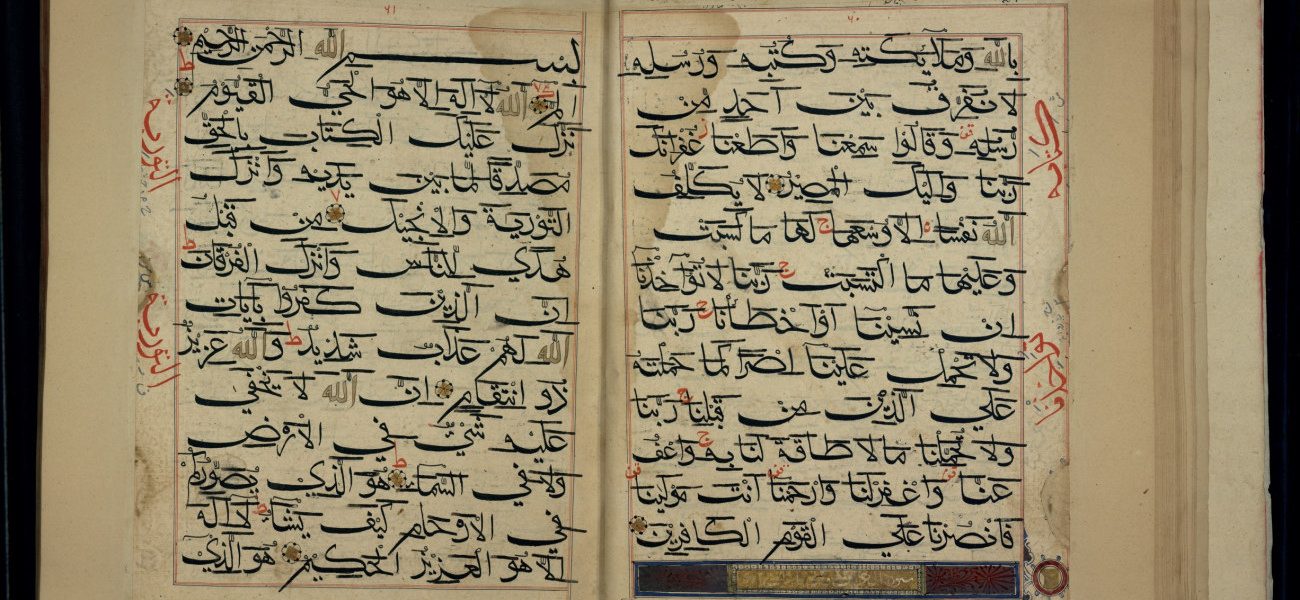 ٦٠
بِاللهِ وَمَلَائِكَتِهِ وَكُتُبِهِ وَرُسُلِهِ
لَا نُفَرِّقُ بَيْنَ أَحَدٍ مِنْ
رُسُلِهِ وَقَالُوا سَمِعْنَا وَأَطَعْنَا غُفْرَانَكَ
رَبَّنَا وَإِلَيْكَ الْمَصِيرُ لَا يُكَلِّفُ
اللهُ نَفْسًا إِلَّا وُسْعَهَا لَهَا مَا كَسَبَتْ
وَعَلَيْهَا مَا اكْتَسَبَتْ رَبَّنَا لَا تُؤَاخِذْنَا
إِنْ نَسِينَا أَوْ أَخْطَأْنَا رَبَّنَا
وَلَا تَحْمِلْ عَلَيْنَا إِصْرًا كَمَا حَمَلْتَهُ
عَلَى الَّذِينَ مِنْ قَبْلِنَا رَبَّنَا
وَلَا تُحَمِّلْنَا مَا لَا طَاقَةَ لَنَا بِهِ وَاعْفُ
عَنَّا وَاغْفِرْ لَنَا وَارْحَمْنَا أَنْتَ مَوْلَينَا
فَانْصُرْنَا عَلَى الْقَوْمِ الْكَافِرِينَ
٦١
بِسْمِ اللهِ الرَّحْمٰنِ الرَّحِيمِ
الم اللهُ لَا إِلَهَ إِلَّا هُوَ الْحَيُّ الْقَيُّومُ
نَزَّلَ عَلَيْكَ الْكِتَابَ بِالْحَقِّ
مُصَدِّقًا لِمَا بَيْنَ يَدَيْهِ وَأَنْزَلَ
التَّوْرَيةَ وَالْإِنْجِيلَ مِنْ قَبْلُ
هُدًى لِلنَّاسِ وَأَنْزَلَ الْفُرْقَانَ
إِنَّ الَّذِينَ كَفَرُوا بِآيَاتِ
اللهِ لَهُمْ عَذَابٌ شَدِيدٌ وَاللهُ عَزِيزٌ
ذُو انْتِقَامٍ إِنَّ اللهَ لَا يَخْفَى
عَلَيْهِ شَيْءٌ فِي الْأَرْضِ
وَلَا فِي السَّمَاءِ هُوَ الَّذِي يُصَوِّرُكُمْ
فِي الْأَرْحَامِ كَيْفَ يَشَاءُ لَا إِلَهَ
إِلَّا هُوَ الْعَزِيزُ الْحَكِيمُ هُوَ الَّذِي
التورية
التورية